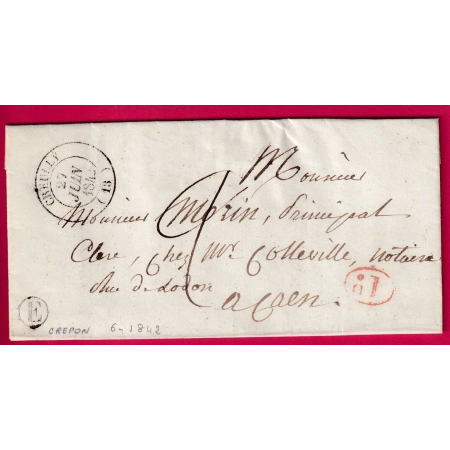 CREULLY (13)
27
JUIN
1842
Monsieur
Monsieur Morin, Principal
Clerc, chez Mr. Colleville, notaire
Rue de
a Caen.
E
CREPON 6-1842